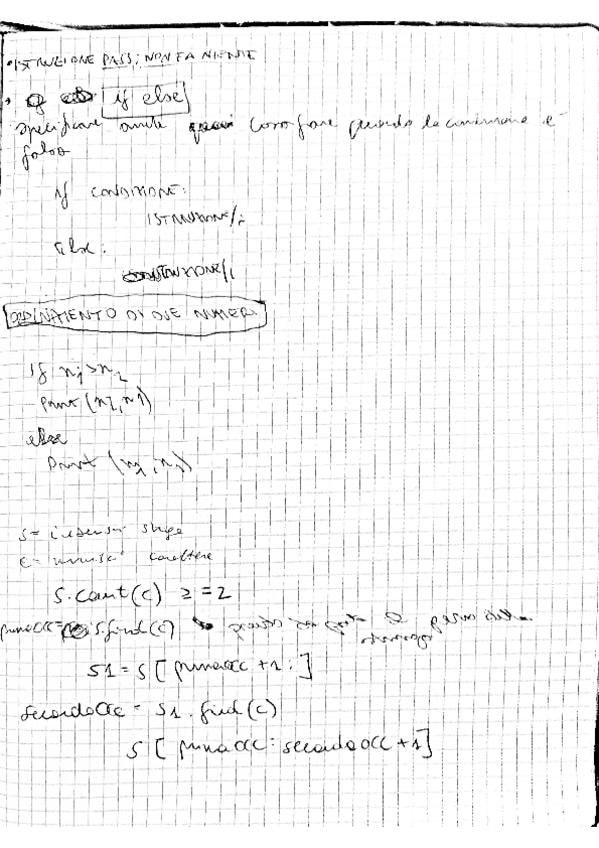 • ISTRUZIONE PASS; NON FA NIENTE
• if else
specificare anche cosa fare quando la condizione è
falsa
if CONDIZIONE:
ISTRUZIONE/i
else:
ISTRUZIONE/i
ORDINAMENTO DI DUE NUMERI
if n1>n2
Print (n2,n1)
else
Print (n1,n2)
s= inserisci stringa
c= inserisci carattere
s.count(c) >=2
primaocc= s.find(c)
s1=s[primaocc +1:]
secondaocc = s1.find(c)
s [primaocc:secondaocc+1]